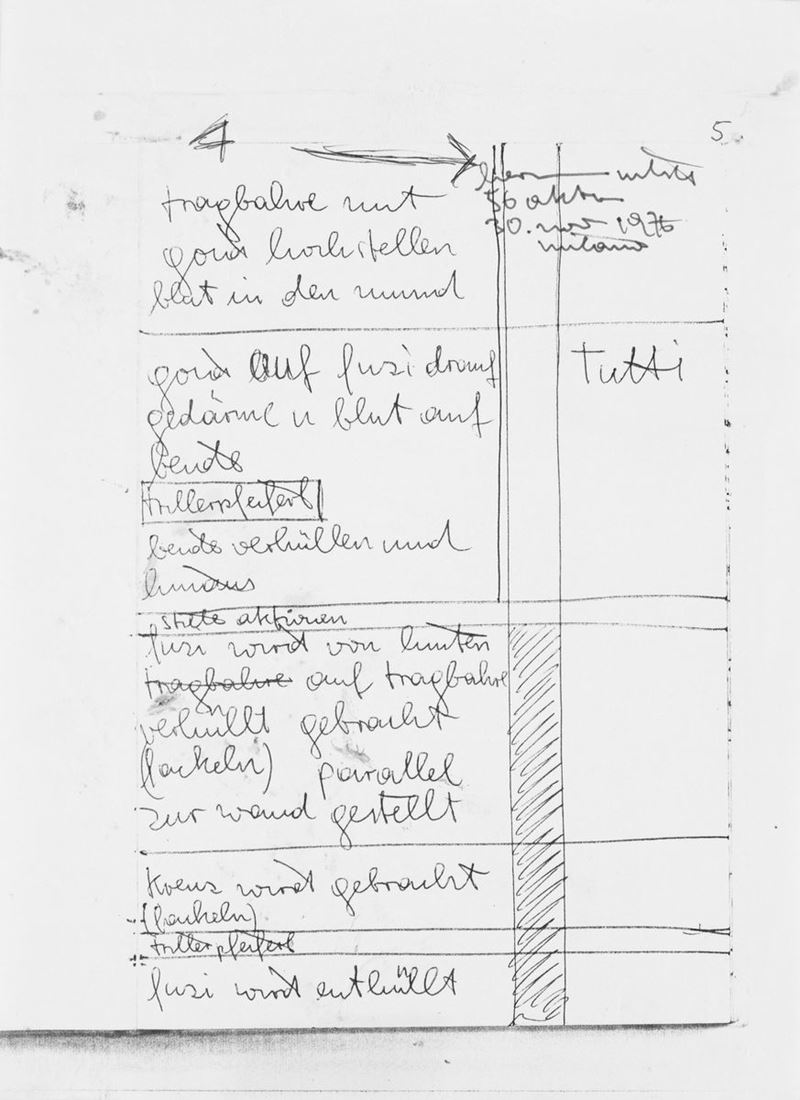 4 5
hermann nitsch
56 aktion
30. nov 1976
milano
tragbahre mit
hochstellen
blut in den mund
auf fuzi drauf Tutti
gedärme u blut auf
beide
trillerpfeiferl
beide verhüllen und
hinaus
aktionen
fuzi wird von hinten
tragbahre auf tragbahre
verhüllt gebracht
(fackeln) parallel
zur wand gestellt
kreuz wird gebracht
(fackeln)
trillerpfeiferl
fuzi wird enthüllt